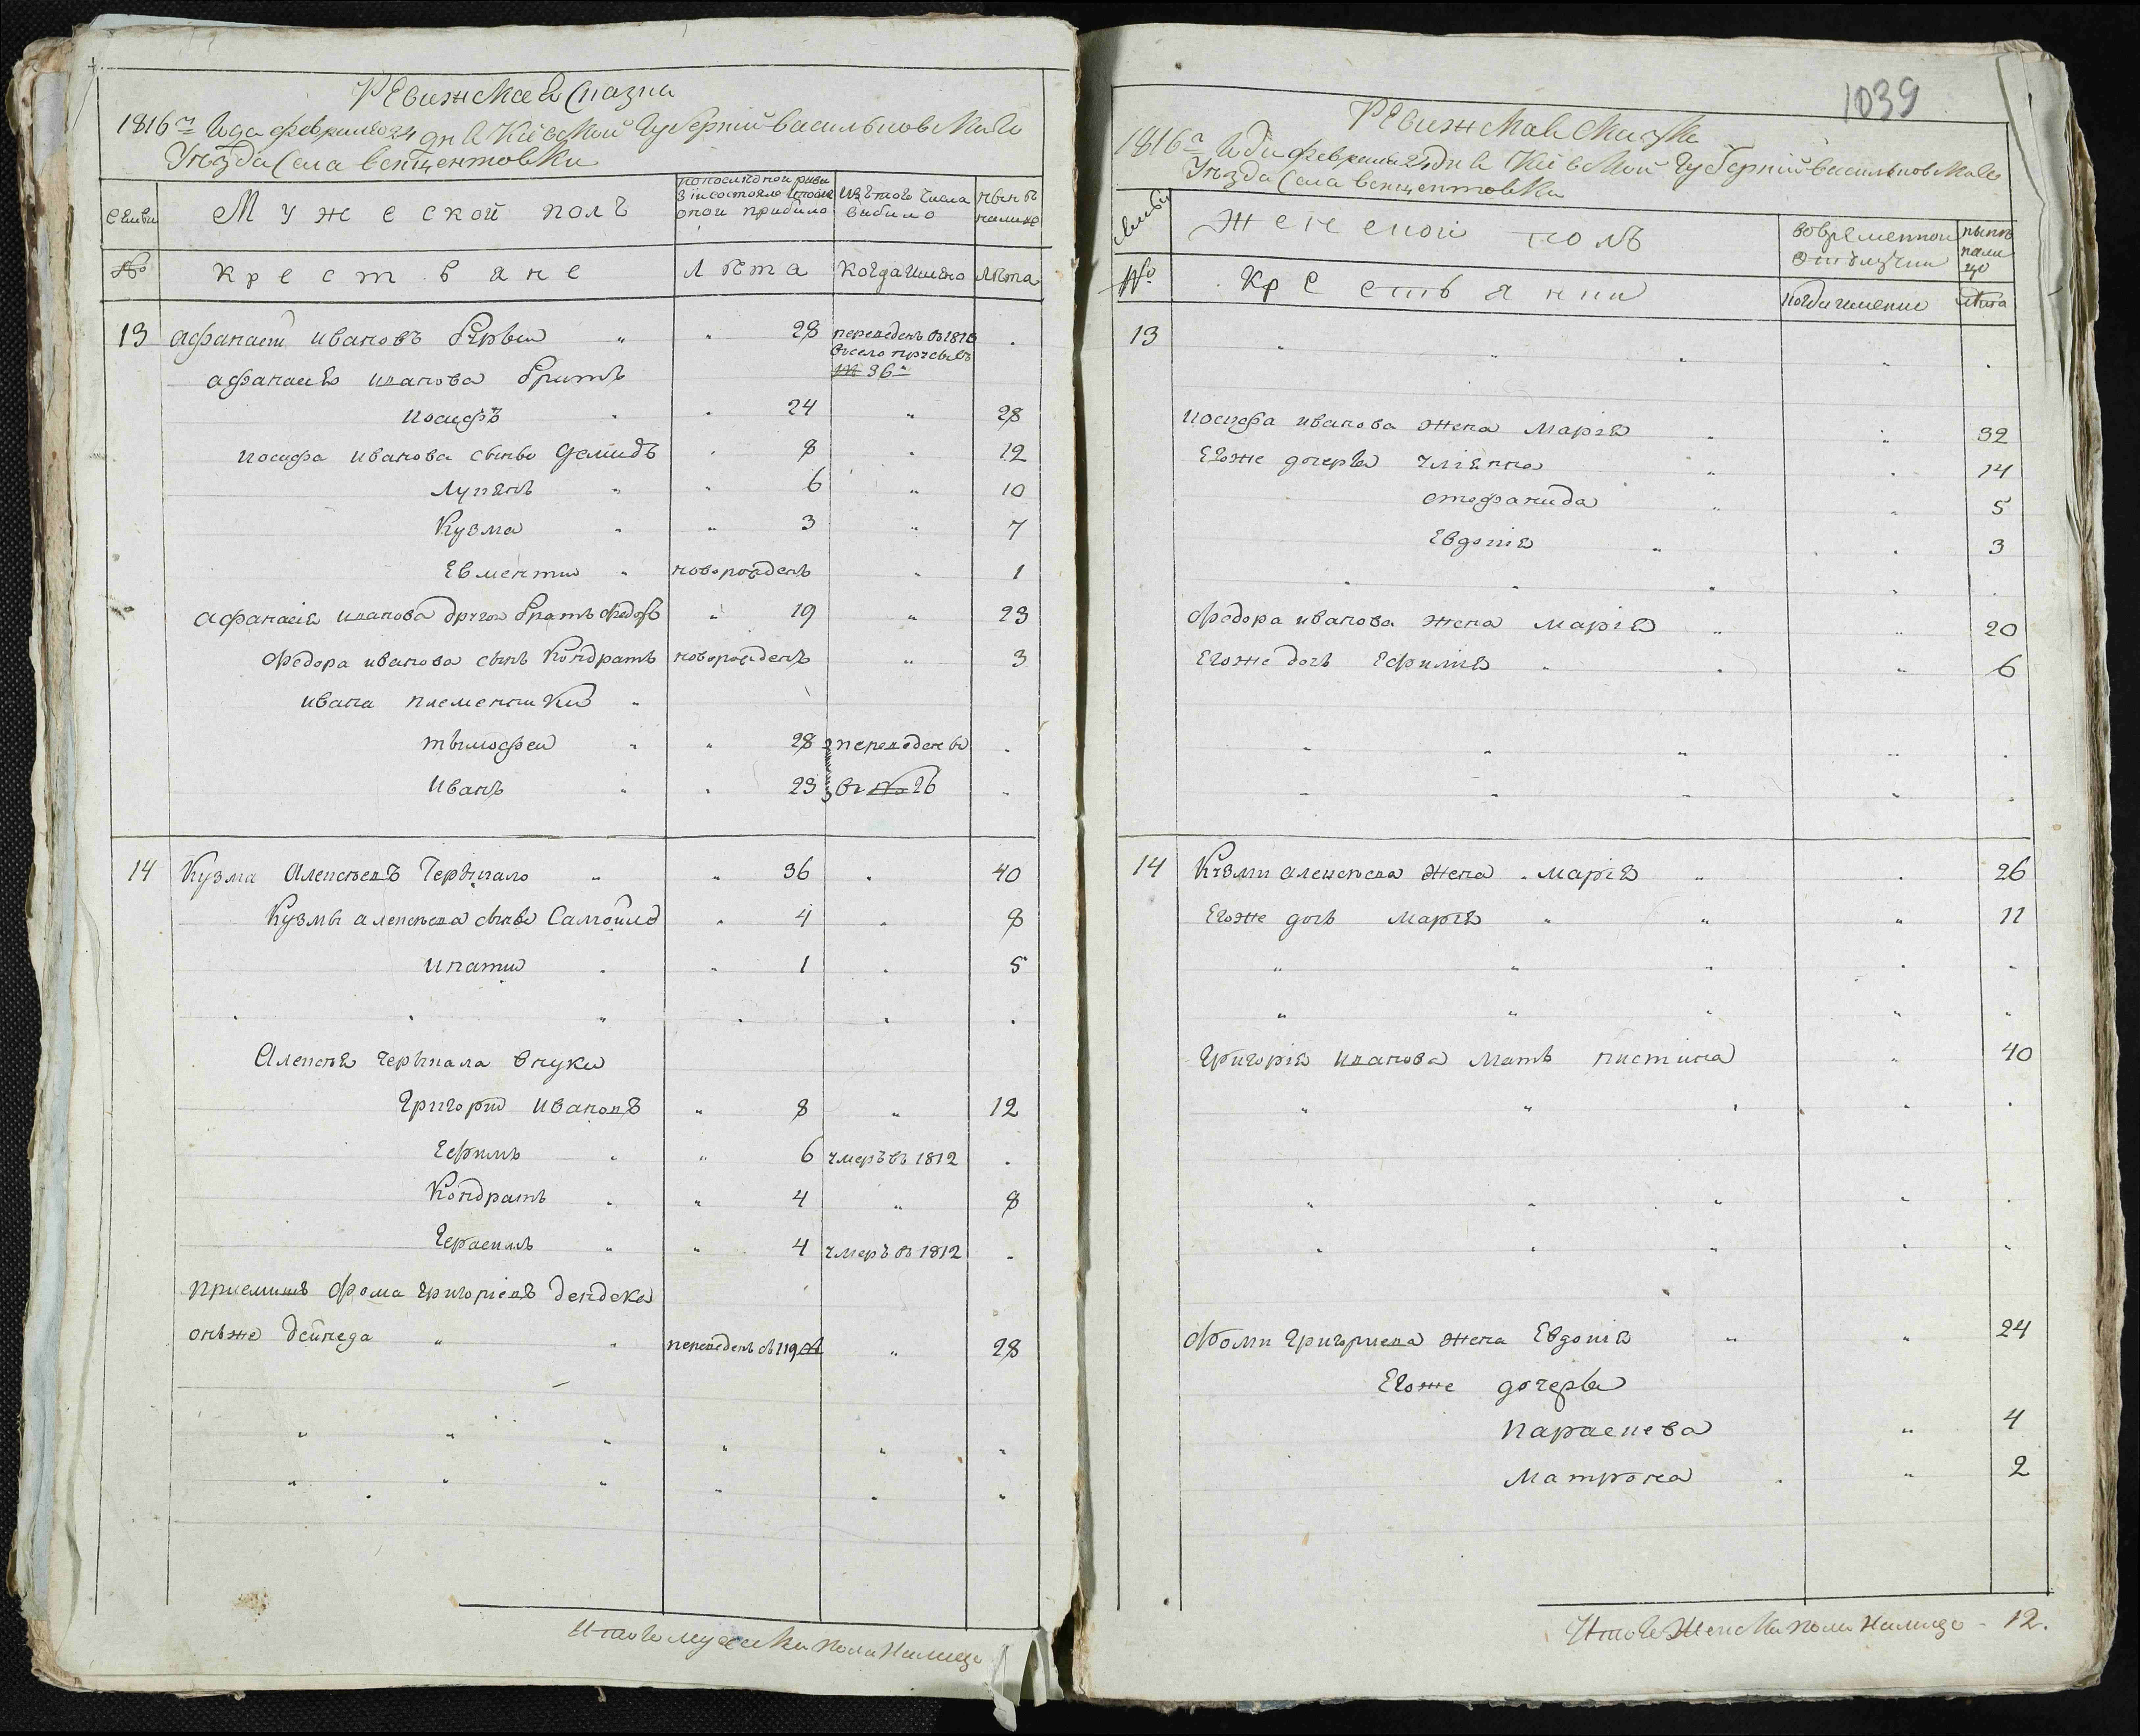 Ревижская Сказка
1816го Года февраля 24 дня Киевской Губернии Васильковскаго
Уезда Села Винцентовки
Семьи
Мужеской полъ
по последней ревизии состояло и после оной прибыло
Изътого числа выбыло
ныне налицо
№
Крестьяне
Лета
Когда имянно
Лета
13 Афанасий Ивановъ 28 переведенъ въ 1816
въ село
№ 36й
Афанасия Иванова братъ
Иосифъ 24 28
Иосифа Иванова сынъ Демидъ 8 12
Лукянъ 6 10
Кузма 3 7
Евментий новорожденъ 1
Афанасия Иванова другой братъ Федоръ 19 23
Федора Иванова сынъ Кондратъ новорожденъ 3
Ивана племенники
Тымофей 28 переведены
Иванъ 23 въ № 26
14 Кузма Алексеевъ Черкало 36 40
Кузмы Алексеева сынъ Самойло 4 8
Ипатий 1 5
Алексея Черкала внуки
Григорий Ивановъ 8 12
Ефимъ 6 умеръ въ 1812
Кондратъ 4 8
Герасимъ 4 умеръ въ 1812
приемишъ Фома Григориевъ Дендека
онъже Дейнеда переведенъ съ 119 № 28
Итого мужеска пола налицо
1039
Ревижская Сказка
1816го Года февраля 24 дня Киевской Губернии Васильковскаго
Уезда Села Винцентовки
Семьи
Женской полъ
Вовременной отлучки
ныне налицо
№
Крестьянки
Когда имянно
Лета
13
Иосифа Иванова жена Мария 32
Егоже дочеры Улиянна 14
Стефанида 5
Евдокия 3
Федора Иванова жена Мария 20
Егоже дочь Ефимия 6
14 Кузми Алексеева жена Мария 26
Егоже дочь Мария 11
Григория Иванова мать Пистина 40
Фоми Григориева жена Евдокия 24
Егоже дочеры
Параскева 4
Матрона 2
Итого Женска пола Налицо - 12.